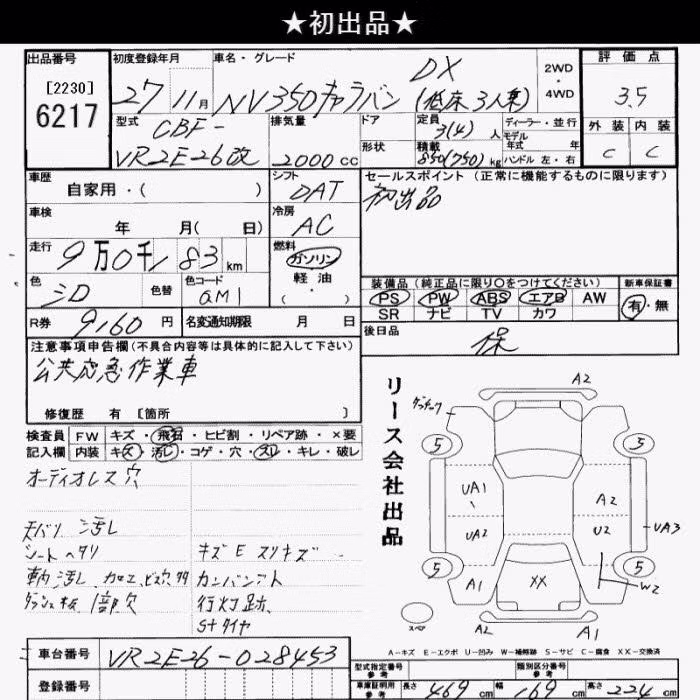 ★初出品★
出品番号
[2230]
6217
初度登録年月
27 11月
車名・グレード
NV350キャラバン
DX
(低床 3人乗)
2WD
・
4WD
評価点
3.5
外装 内装
C C
型式
CBF-
VR2E26改
排気量
2000cc
ドア
形状
定員
3(4)人
積載
850(750)kg
ディーラー・並行
モデル
年式 年
ハンドル 左・右
車歴
自家用・( )
シフト
DAT
セールスポイント (正常に機能するものに限ります)
初出品
車検
年 月( 日)
冷房
AC
走行
9万0千183km
燃料
ガソリン
軽油
・( )
色
シロ
色替
色コード
QM1
装備品 (純正品に限り○をつけてください)
PS PW ABS エアB AW
SR ナビ TV カワ
新車保証書
有・無
R券 9,160円
名変通知期限 月 日
後日品
保
注意事項申告欄(不具合内容等は具体的に記入して下さい)
公共応急作業車
修復歴 有 [箇所 ]
検査員
記入欄
FW キズ・飛石・ヒビ割・リペア跡・×要
内装 キズ・汚レ・コゲ・穴・スレ・キレ・破レ
オーディオレス 穴
天バリ 汚レ
シートヘタリ
キズ E スリキズ
ダッシュ板 1部欠
行灯跡
S+タイヤ
リース会社出品
A2
5
5
UA1
A2
UA2
U2
UA3
5
5
A1
XX
W2
スペア
A2
A1
A-キズ E-エクボ U-凹み W-補修跡 S-サビ C-腐食 XX-交換済
車台番号 VR2E26-028453
登録番号
型式指定番号
参考
類別区分番号
参考
車庫証明用
参考
長さ 469cm 幅 169cm 高さ 224cm